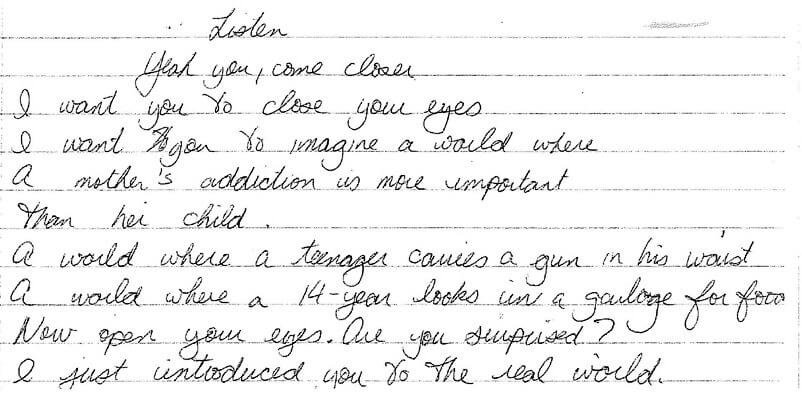 Listen
Yeah you, come closer
I want you to close your eyes
I want you to imagine a world where
A mother's addiction is more important
Than her child.
A world where a teenager carries a gun in his waist
A world where a 14-year looks in a garbage for food
Now open your eyes. Are you surprised?
I just introduced you to the real world.